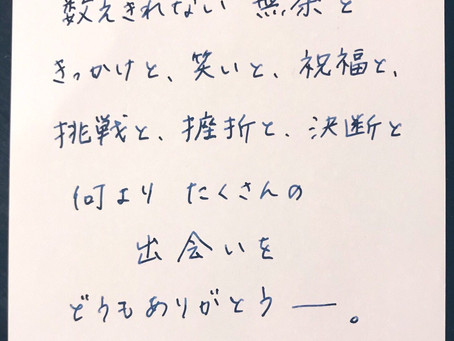 数えきれない 無茶と
きっかけと、笑いと、祝福と、
挑戦と、挫折と、決断と
何より たくさんの
出会いを
どうもありがとう ー。